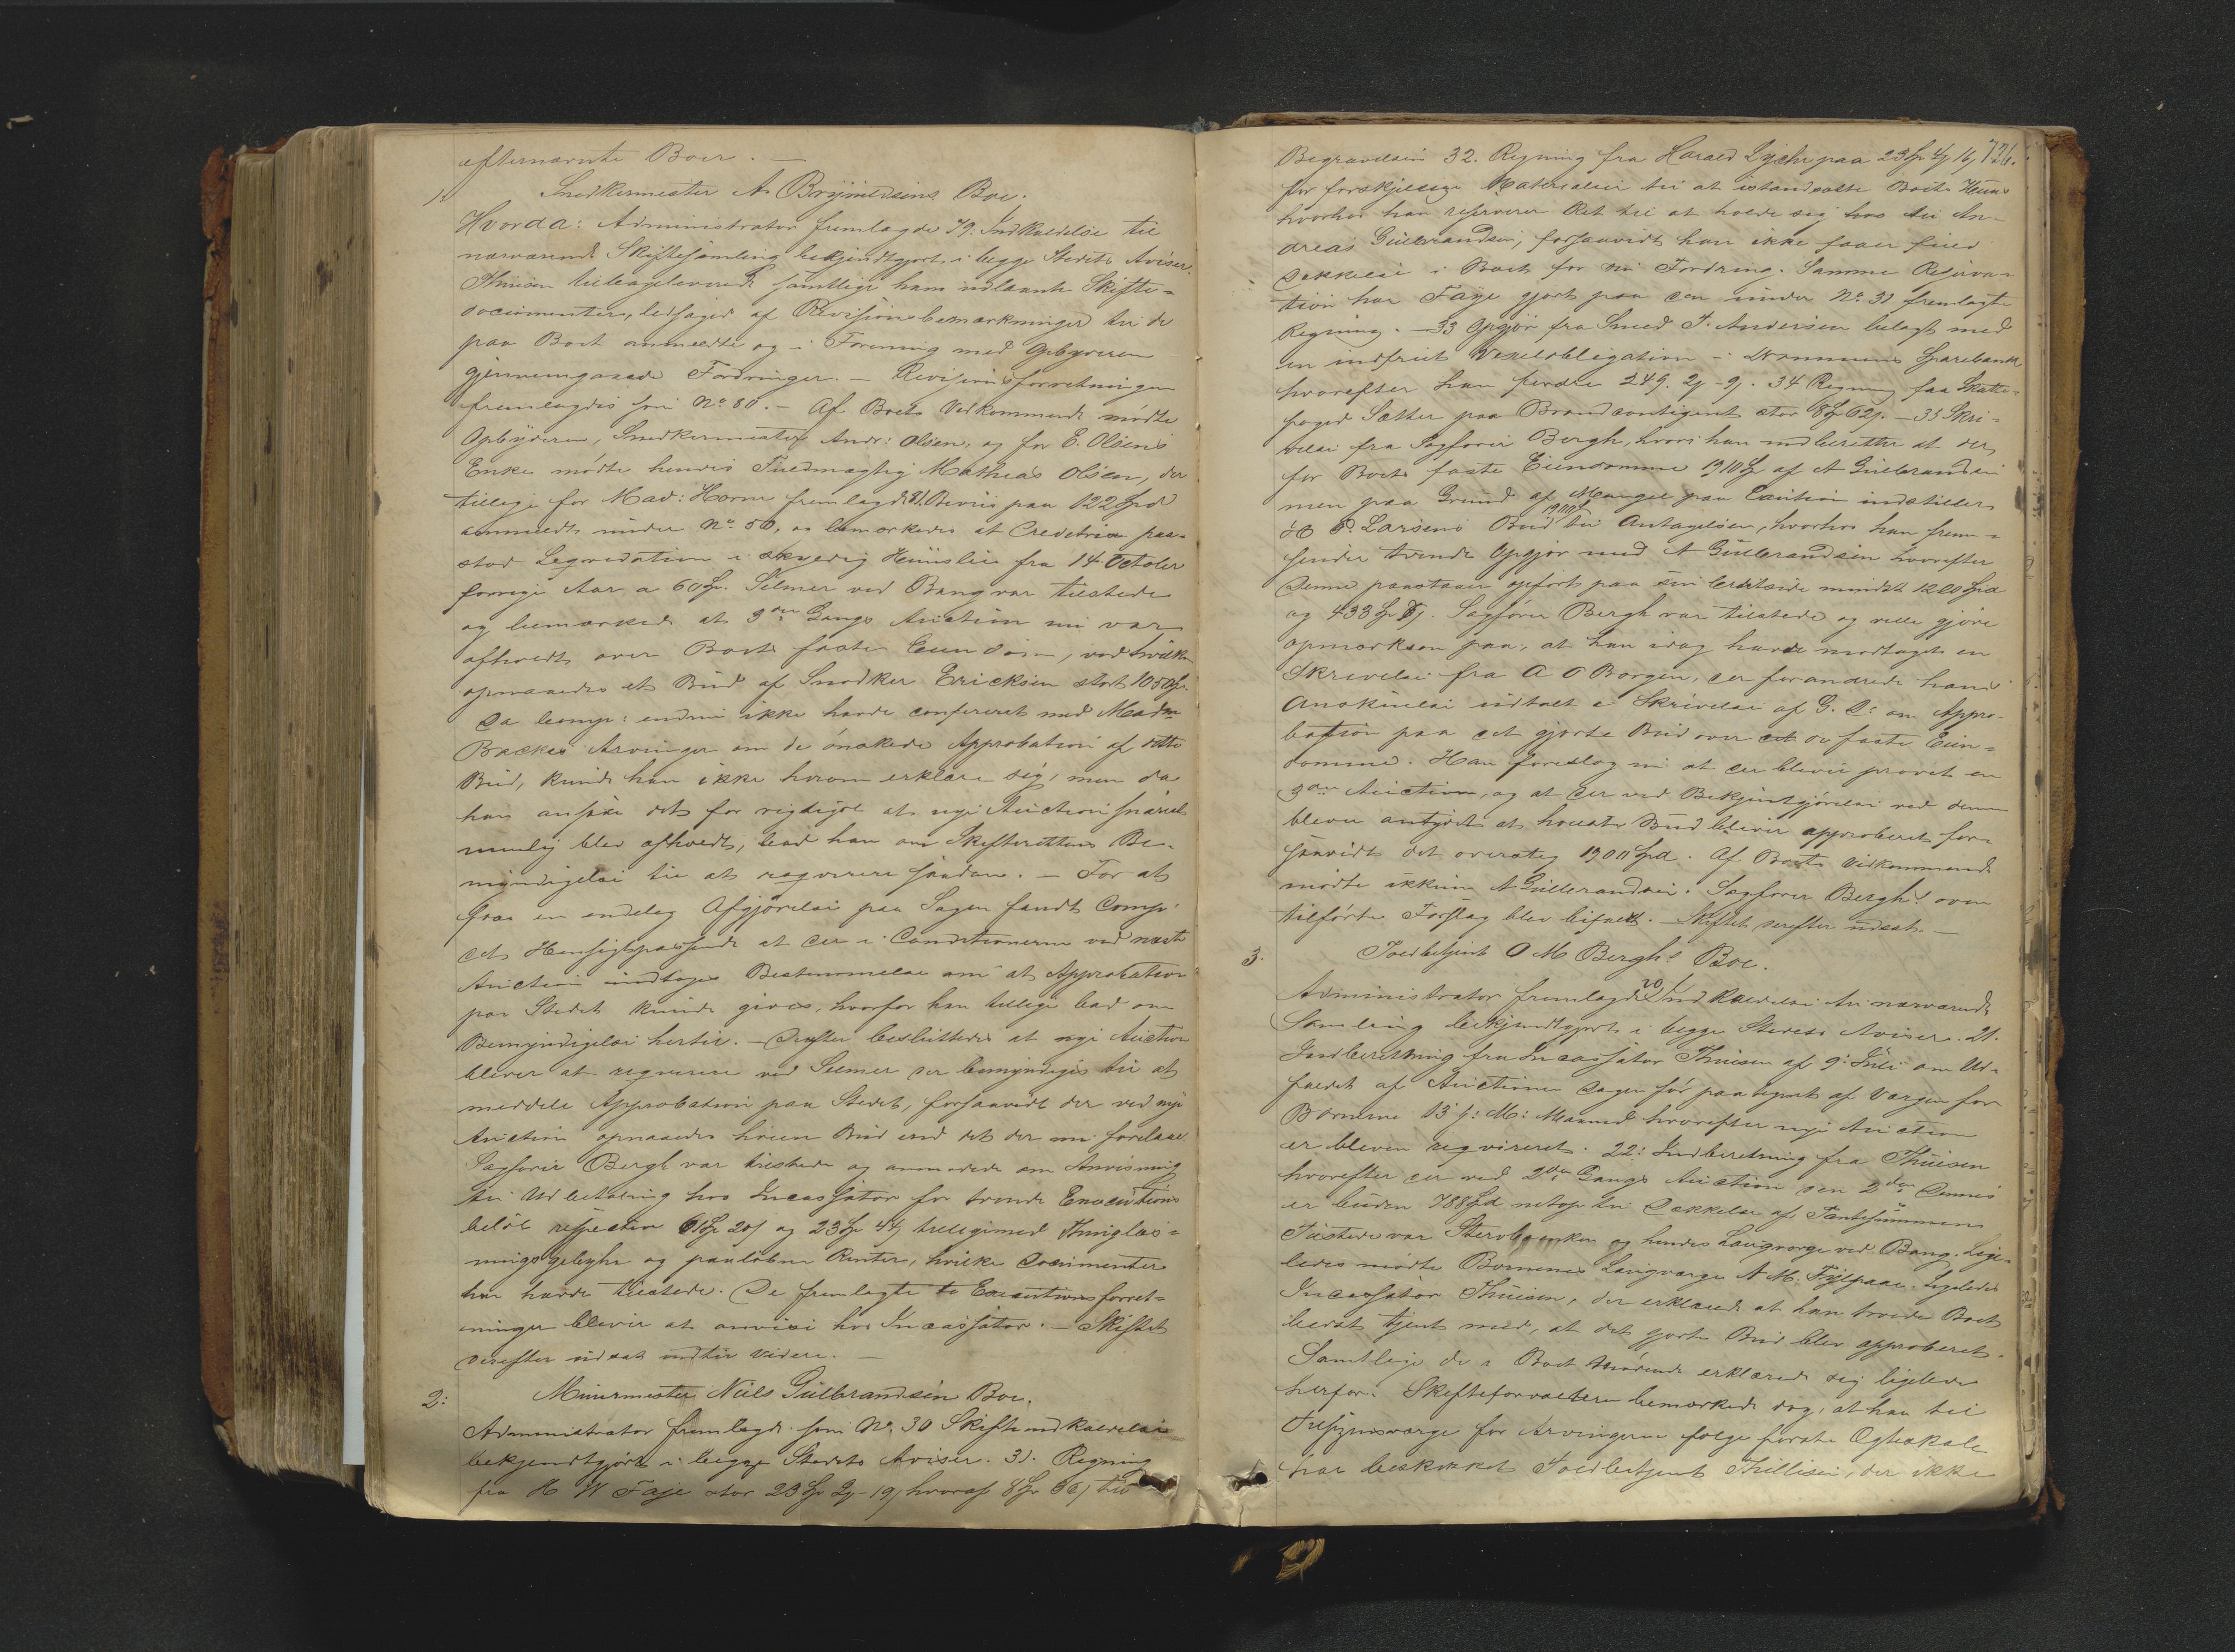 efternævnte Boer. —
1. Snedkermester A. Brynildsens Boe.
Hvorda: Administrator fremlagde 79. Indkaldelse til
nærværende Skiftesamling bekjendtgjort i begge Stedets Aviser.
Thuesen tilbageleverede samtlige ham udlaante Skifte-
documenter, ledsaget af Revisionsbemærkninger til de
paa Boet anmeldte og i Forening med Opbyderen
gjennemgaaede Fordringer. — Revisionsforretningen
fremlagdes som No 80. — Af Boets Vedkommende mødte
Opbyderen, Snedkermester Andr: Olsen, og for E. Olsens
Enke mødte hendes Fuldmægtig Mathias Olsen, der
tillige for Mad: Horne fremlagde 81. Beviis paa 122 Spd
anmeldt under No 50, og bemærkedes at Creditrix paa-
stod Leqvidation i skyldig Huusleie fra 14 October
forrige Aar a 60 Sp. Selmer ved Bang var tilstede
og bemærkede at 3die Gangs Auction nu var
afholdt over Boets faste Eiendom, ved hvilken
opnaaedes et Bud af Snedker Ericksen stort 1050 Sp.
Da Comp: endnu ikke havde confereret med Madm
Backes Arvinger om de ønskede Approbation af dette
Bud, kunde han ikke herom erklære sig, men da
han ansaae det for rigtigst at nye Auction snarest
muulig blev afholdt, bad han om Skifterettens Be-
myndigelse til at reqvirere saadan. — For at
faae en endelig Afgjørelse paa Sagen fandt Comp:
det Hensigtspassende at der i Conditionerne ved næste
Auction indtages Bestemmelse om at Approbation
paa Stedet kunde gives, hvorfor han tillige bad om
Bemyndigelse hertil. — Derefter besluttedes at nye Auction
bliver at reqvirere ved Selmer der bemyndiges til at
meddele Approbation paa Stedet, forsaavidt der ved nye
Auction opnaaedes høiere Bud end det der nu forelaae.
Sagfører Bergh var tilstede og anmodede om Anvisning
til Udbetaling hos Incassator for tvende Executions
beløb respective 61 Sp 20 s og 23 Sp 44 s tilligemed Thinglæs-
ningsgebyhr og paaløbne Renter, hvilke Documenter
han havde tilstede. De fremlagte to Executionsforret-
ninger bliver at anvise hos Incassator. — Skiftet
derefter udsat indtil videre. —
2: Muurmester Niels Gulbrandsens Boe.
Administrator fremlagde som No. 30 Skifteindkaldelse
bekjendtgjort i begge Stedets Aviser. 31. Regning
fra H W Faye stor 23 Sp 2 - 19 s hvoraf 8 Sp 56 s til
726.
Begravelsen 32. Regning fra Harald Lyche paa 23 Sp 4 16 s
for forskjellige Materialier til at istandsatte Boets Huus
hvorhos han reserverer Ret til at holde sig hos til An-
dreas Gulbrandsen, forsaavidt han ikke faaer fuld
Dækkelse i Boet for sin Fordring. Samme Reserva-
tion har Faye gjort paa den under No. 31 fremlagte
Regning. — 33 Opgjør fra Smed T. Andersen belagt med
en indfriet Vexelobligation i Drammens Sparebank
hvorefter han fordrer 249. 2 - 9. 34 Regning fra Skatte-
foged Sætter paa Brandcontigent stor 8 Sp 62 s. — 35 Skri-
velse fra Sagfører Bergh, hvori han indberetter at der
for Boets faste Eiendomme 1910 Sp af A Gulbrandsen
men paa Grund af Mangel paa Caution indstilles
H P. Larsens Bud 1900 Sp til Antagelsen, hvorhos han frem-
sender tvende Opgjør med A Gulbrandsen hvorefter
Denne paastaaer opført paa sin Creditside mindst 1220 Spd
og 433 Sp s. Sagfører Bergh var tilstede og ville gjøre
opmærksom paa, at han idag havde modtaget en
Skrivelse fra A O Borgen, der forandrede hans
Anskuelse udtalt i Skrivelse af G. D: om Appro-
bation paa det gjorte Bud over de faste Eien-
domme. Han foreslog nu at der blever prøvet en
3die Auction, og at der ved Bekjentgjørelse ved denne
blever antydet at høieste Bud bliver approberet for-
saavidt det oversteg 1900 Spd. Af Boets Vedkommende
mødte ikkun A Gulbrandsen. Sagfører Berghs oven
tilførte Forslag blev bifaldt. — Skiftet derefter udsat. —
3. Toldbetjent O M Berghs Boe.
Administrator fremlagde 20, Indkaldelse til nærværende
Samling bekjendtgjort i begge Stedets Aviser. 21.
Indberetning fra Incassator Thuesen af 9. Juli om Ud-
faldet af Auctionen Dagen før paategnet af Værgen for
Børnene 13 f: M: Maaned hvorefter nye Auction
er bleven reqvireret. 22: Indberetning fra Thuesen
hvorefter der ved 2den Gangs Auction den 2den Dennes
er buden 788 Spd netop til Dækkelse af Pantesummen
Tilstede var Stervboenken og hendes Laugværge ved Bang. Lige-
ledes mødte Børnenes Laugværge A. M. Fylpaae. Ligeledes
Incassator Thuesen, der erklærede at han troede Boet
bedst tjent med, at det gjorte Bud blev approberet.
Samtlige de i Boet Mødende erklærede sig ligeledes
herfor. Skifteforvalteren bemærkede dog, at han til
Tilsynsværge for Arvingerne følge første Ægteskab
har beskikket Toldbetjent Thillisen, der ikke